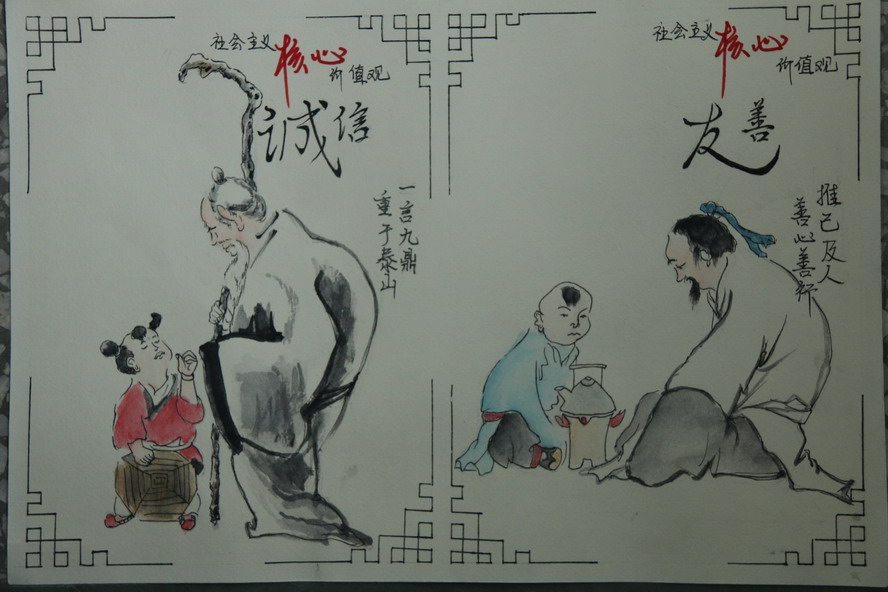 社会主义
核心
价值观
诚信
一言九鼎
重于泰山
社会主义
核心
价值观
友善
推己及人
善心善行